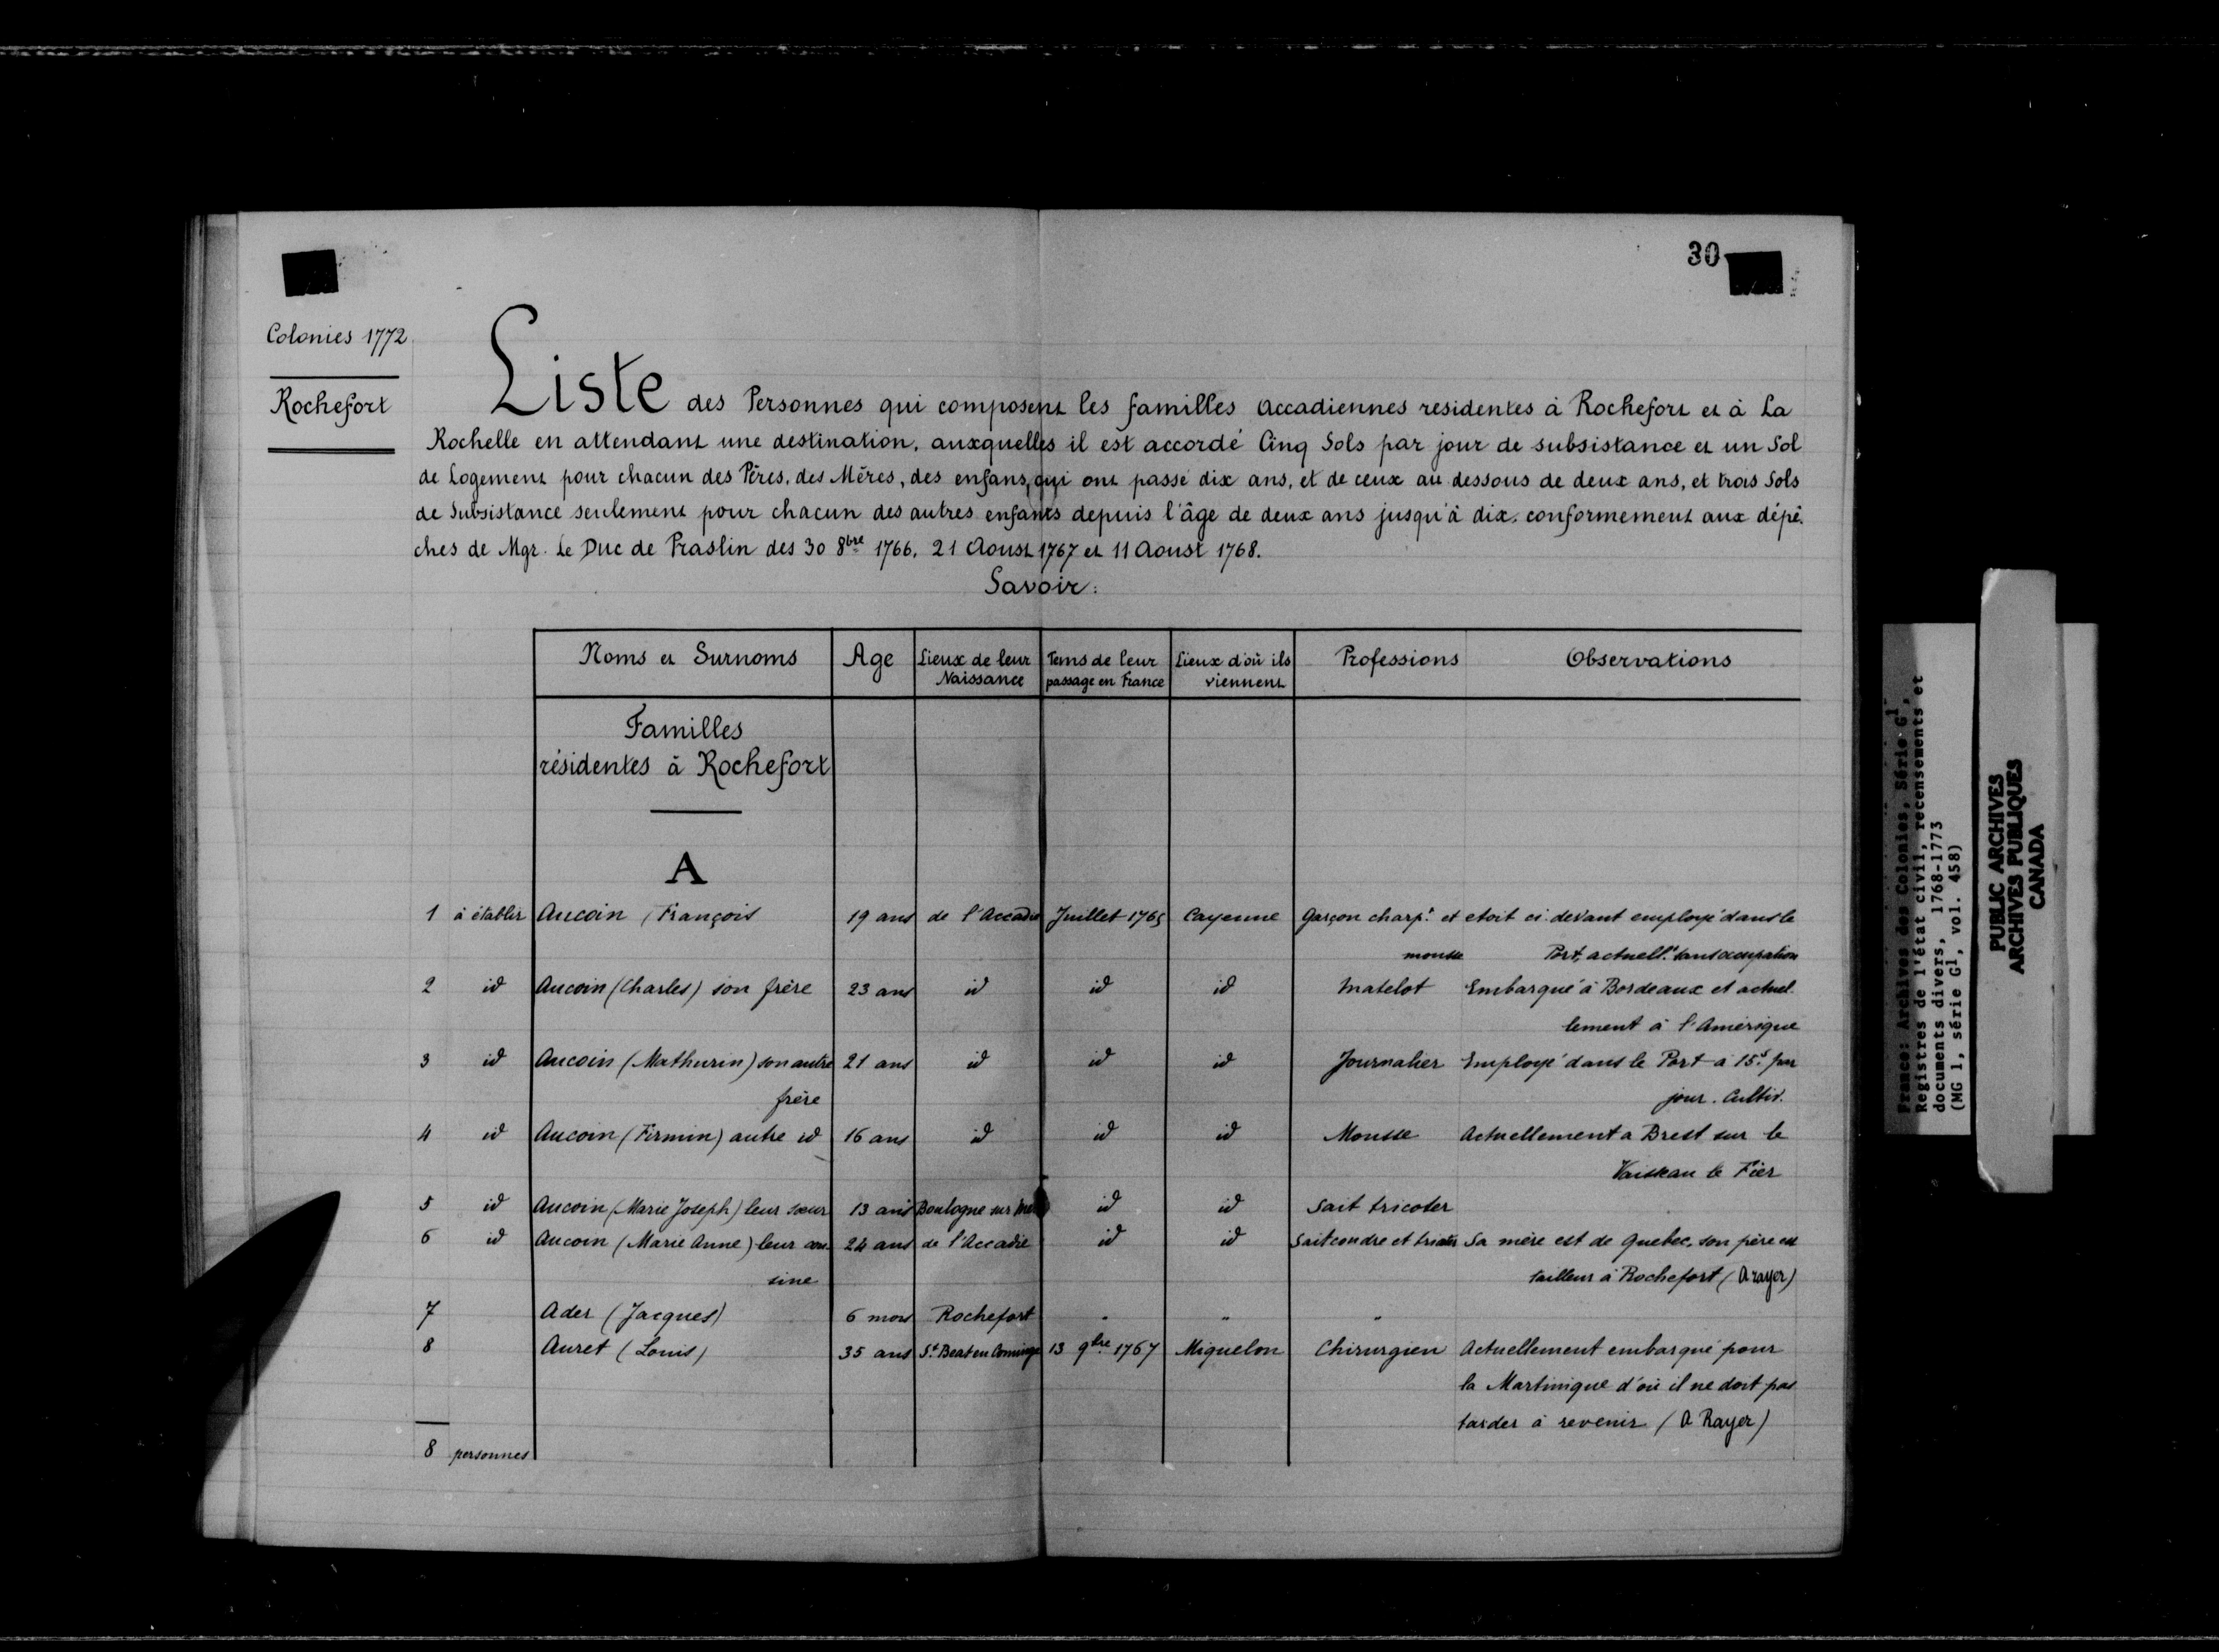 30
Colonies 1772
Rochefort
Liste des Personnes qui composent les familles accadiennes residentes à Rochefort et à La
Rochelle en attendant une destination, auxquelles il est accordé Cinq Sols par jour de subsistance et un Sol
de Logement pour chacun des Péres, des Méres, des enfans, qui ont passé dix ans, et de ceux au dessous de deux ans, et trois Sols
de Subsistance seulement pour chacun des autres enfants depuis l'âge de deux ans jusqu'à dix. conformement aux dépê.
ches de Mgr. Le Duc de Praslin des 30 8bre 1766, 21 Aoust 1767 et 11 Aoust 1768.
Savoir:
Noms et Surnoms Age Lieux de leur Tems de leur Lieux d'où ils Professions Observations
Naissance passage en France viennent
Familles
résidentes à Rochefort
A
1 à établir Aucoin (François 19 ans de l'Accadie Juillet 1765 Cayenne Garçon charpt. et etoit ci-devant employé dans le
mousse Port, actuellt. sans occupation
2 id Aucoin (Charles) son frère 23 ans id id id Matelot Embarqué à Bordeaux et actuel-
lement à l'Amérique
3 id Aucoin (Mathurin) son autre 21 ans id id id Journalier Employé dans le Port à 15s par
frère jour. Cultiv.
4 id Aucoin (Firmin) autre id 16 ans id id id Mousse Actuellement a Brest sur le
Vaisseau le Fier
5 id Aucoin (Marie Joseph) leur sœur 13 ans Boulogne sur id id Sait tricoter
6 id Aucoin (Marie Anne) leur cou- 24 ans de l'Accadie id id Sait coudre et tricoter Sa mère est de Quebec, son père est
sine tailleur à Rochefort (A rayer)
7 Ader (Jacques) 6 mois Rochefort " " "
8 Auret (Louis) 35 ans St Beat en Cominge 13 9bre 1767 Miquelon Chirurgien Actuellement embarqué pour
la Martinique d'où il ne doit pas
tarder à revenir (A Rayer)
8 personnes
France: Archives des Colonies, Série G1,
Registres de l'état civil, recensements et
documents divers, 1768-1773
(MG 1, série G1, vol. 458)
PUBLIC ARCHIVES
ARCHIVES PUBLIQUES
CANADA